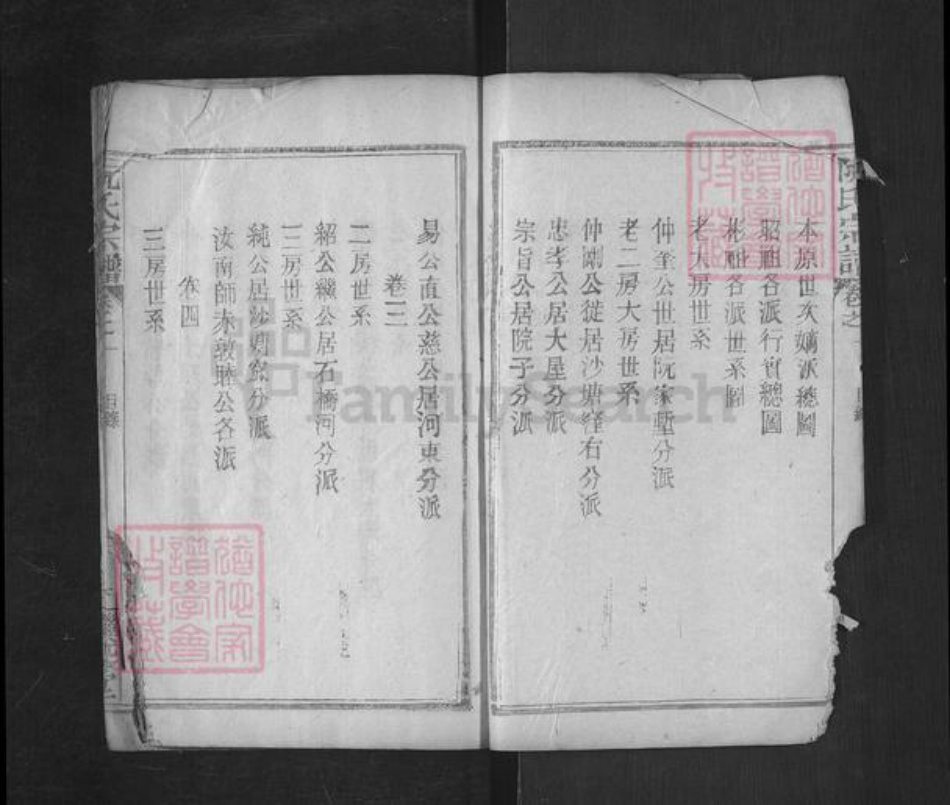 阮氏宗譜 卷之一 目錄
本原世次嫡派總圖
昭祖各派行實總圖
彬祖各派世系圖
老大房世系
仲奎公世居阮家壋分派
老二房大房世系
仲剛公徙居沙塘窪右分派
忠孝公居大屋分派
宗旨公居院子分派
易公直公慈公居河東分派
卷三
二房世系
紹公纖公居石橋河分派
三房世系
純公居沙 分派
汝南師 敦 公各派
卷四
三房世系
阮氏宗譜 卷之一 目錄
FamilySearch